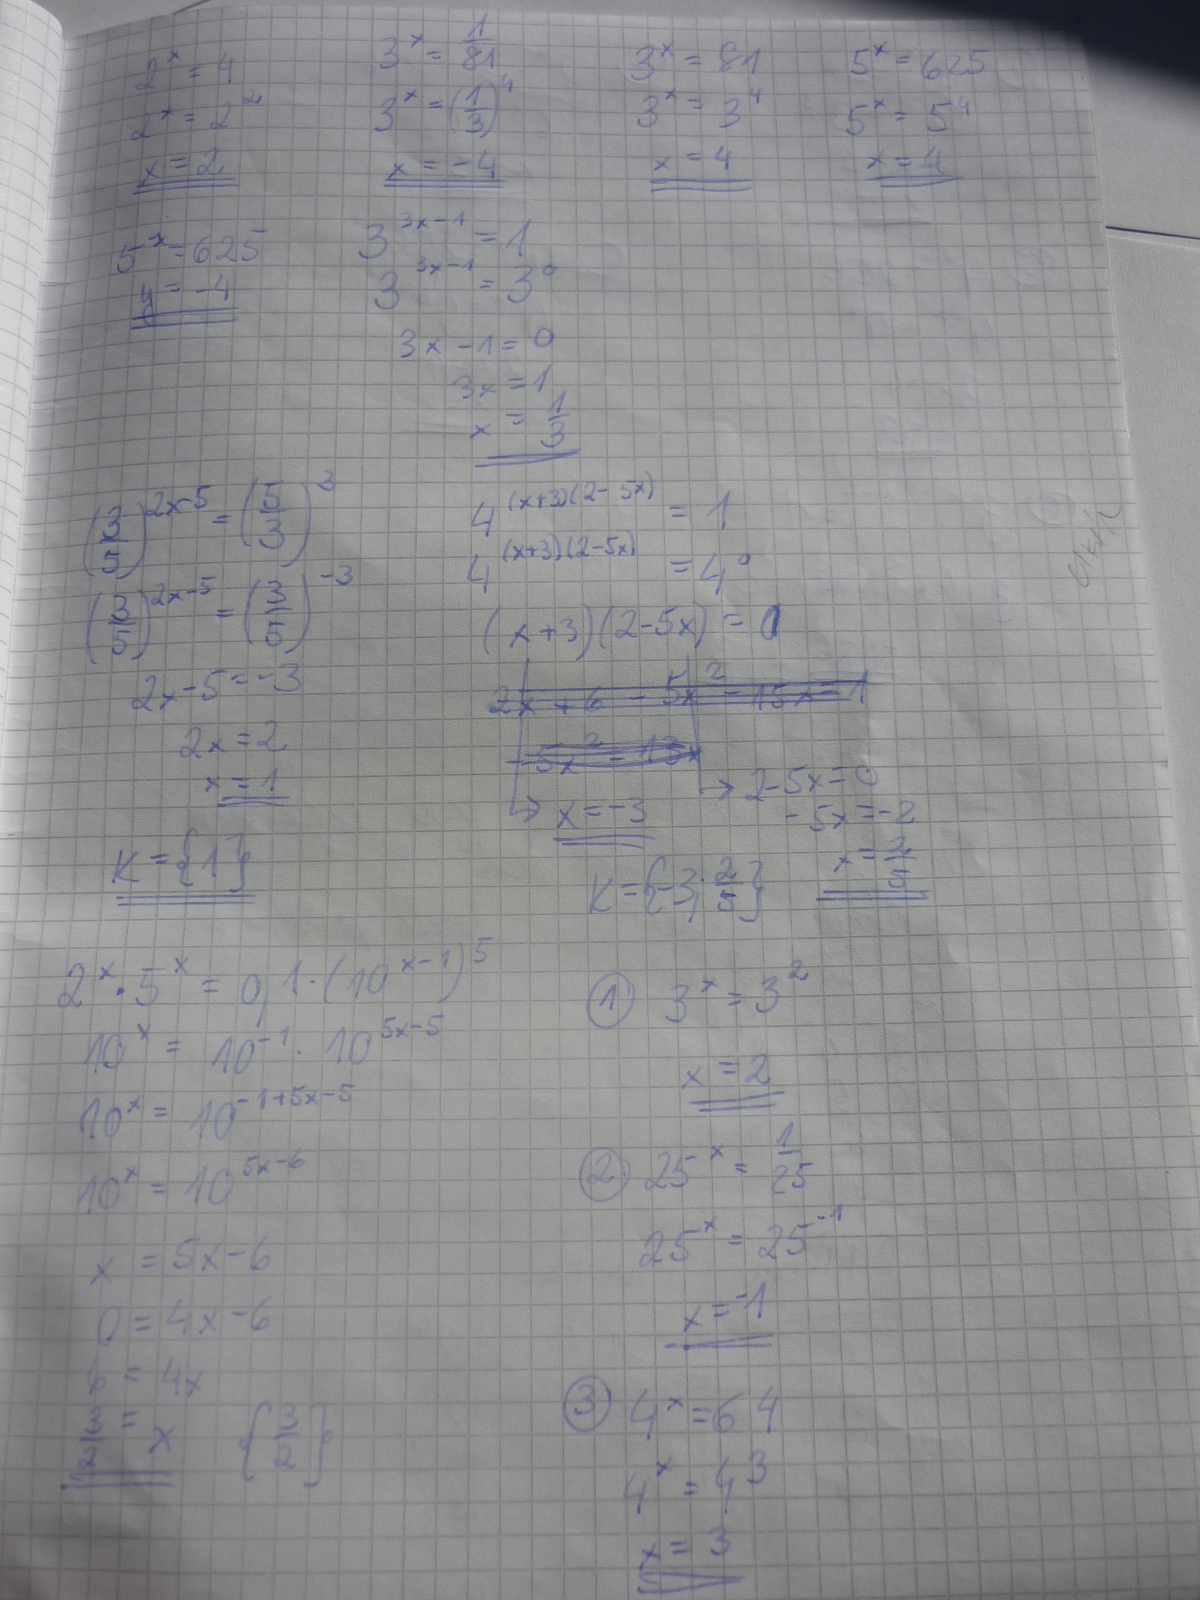 2^x = 4
2^x = 2^2
x = 2
3^x = 1/81
3^x = (1/3)^4
x = -4
3^x = 81
3^x = 3^4
x = 4
5^x = 625
5^x = 5^4
x = 4
5^-x = 625
x = -4
3^(3x-1) = 1
3^(3x-1) = 3^0
3x - 1 = 0
3x = 1
x = 1/3
(3/5)^(2x-5) = (5/3)^3
(3/5)^(2x-5) = (3/5)^-3
2x - 5 = -3
2x = 2
x = 1
K = {1}
4^((x+3)(2-5x)) = 1
4^((x+3)(2-5x)) = 4^0
(x+3)(2-5x) = 0
2x + 6 - 5x^2 - 15x = 1
-5x^2 - 13x
x = -3
→ 2-5x = 0
-5x = -2
x = 2/5
K = {-3; 2/5}
2^x · 5^x = 0,1 · (10^(x-1))^5
10^x = 10^-1 · 10^(5x-5)
10^x = 10^(-1+5x-5)
10^x = 10^(5x-6)
x = 5x - 6
0 = 4x - 6
6 = 4x
3/2 = x {3/2}
① 3^x = 3^2
x = 2
② 25^x = 1/25
25^x = 25^-1
x = -1
③ 4^x = 64
4^x = 4^3
x = 3